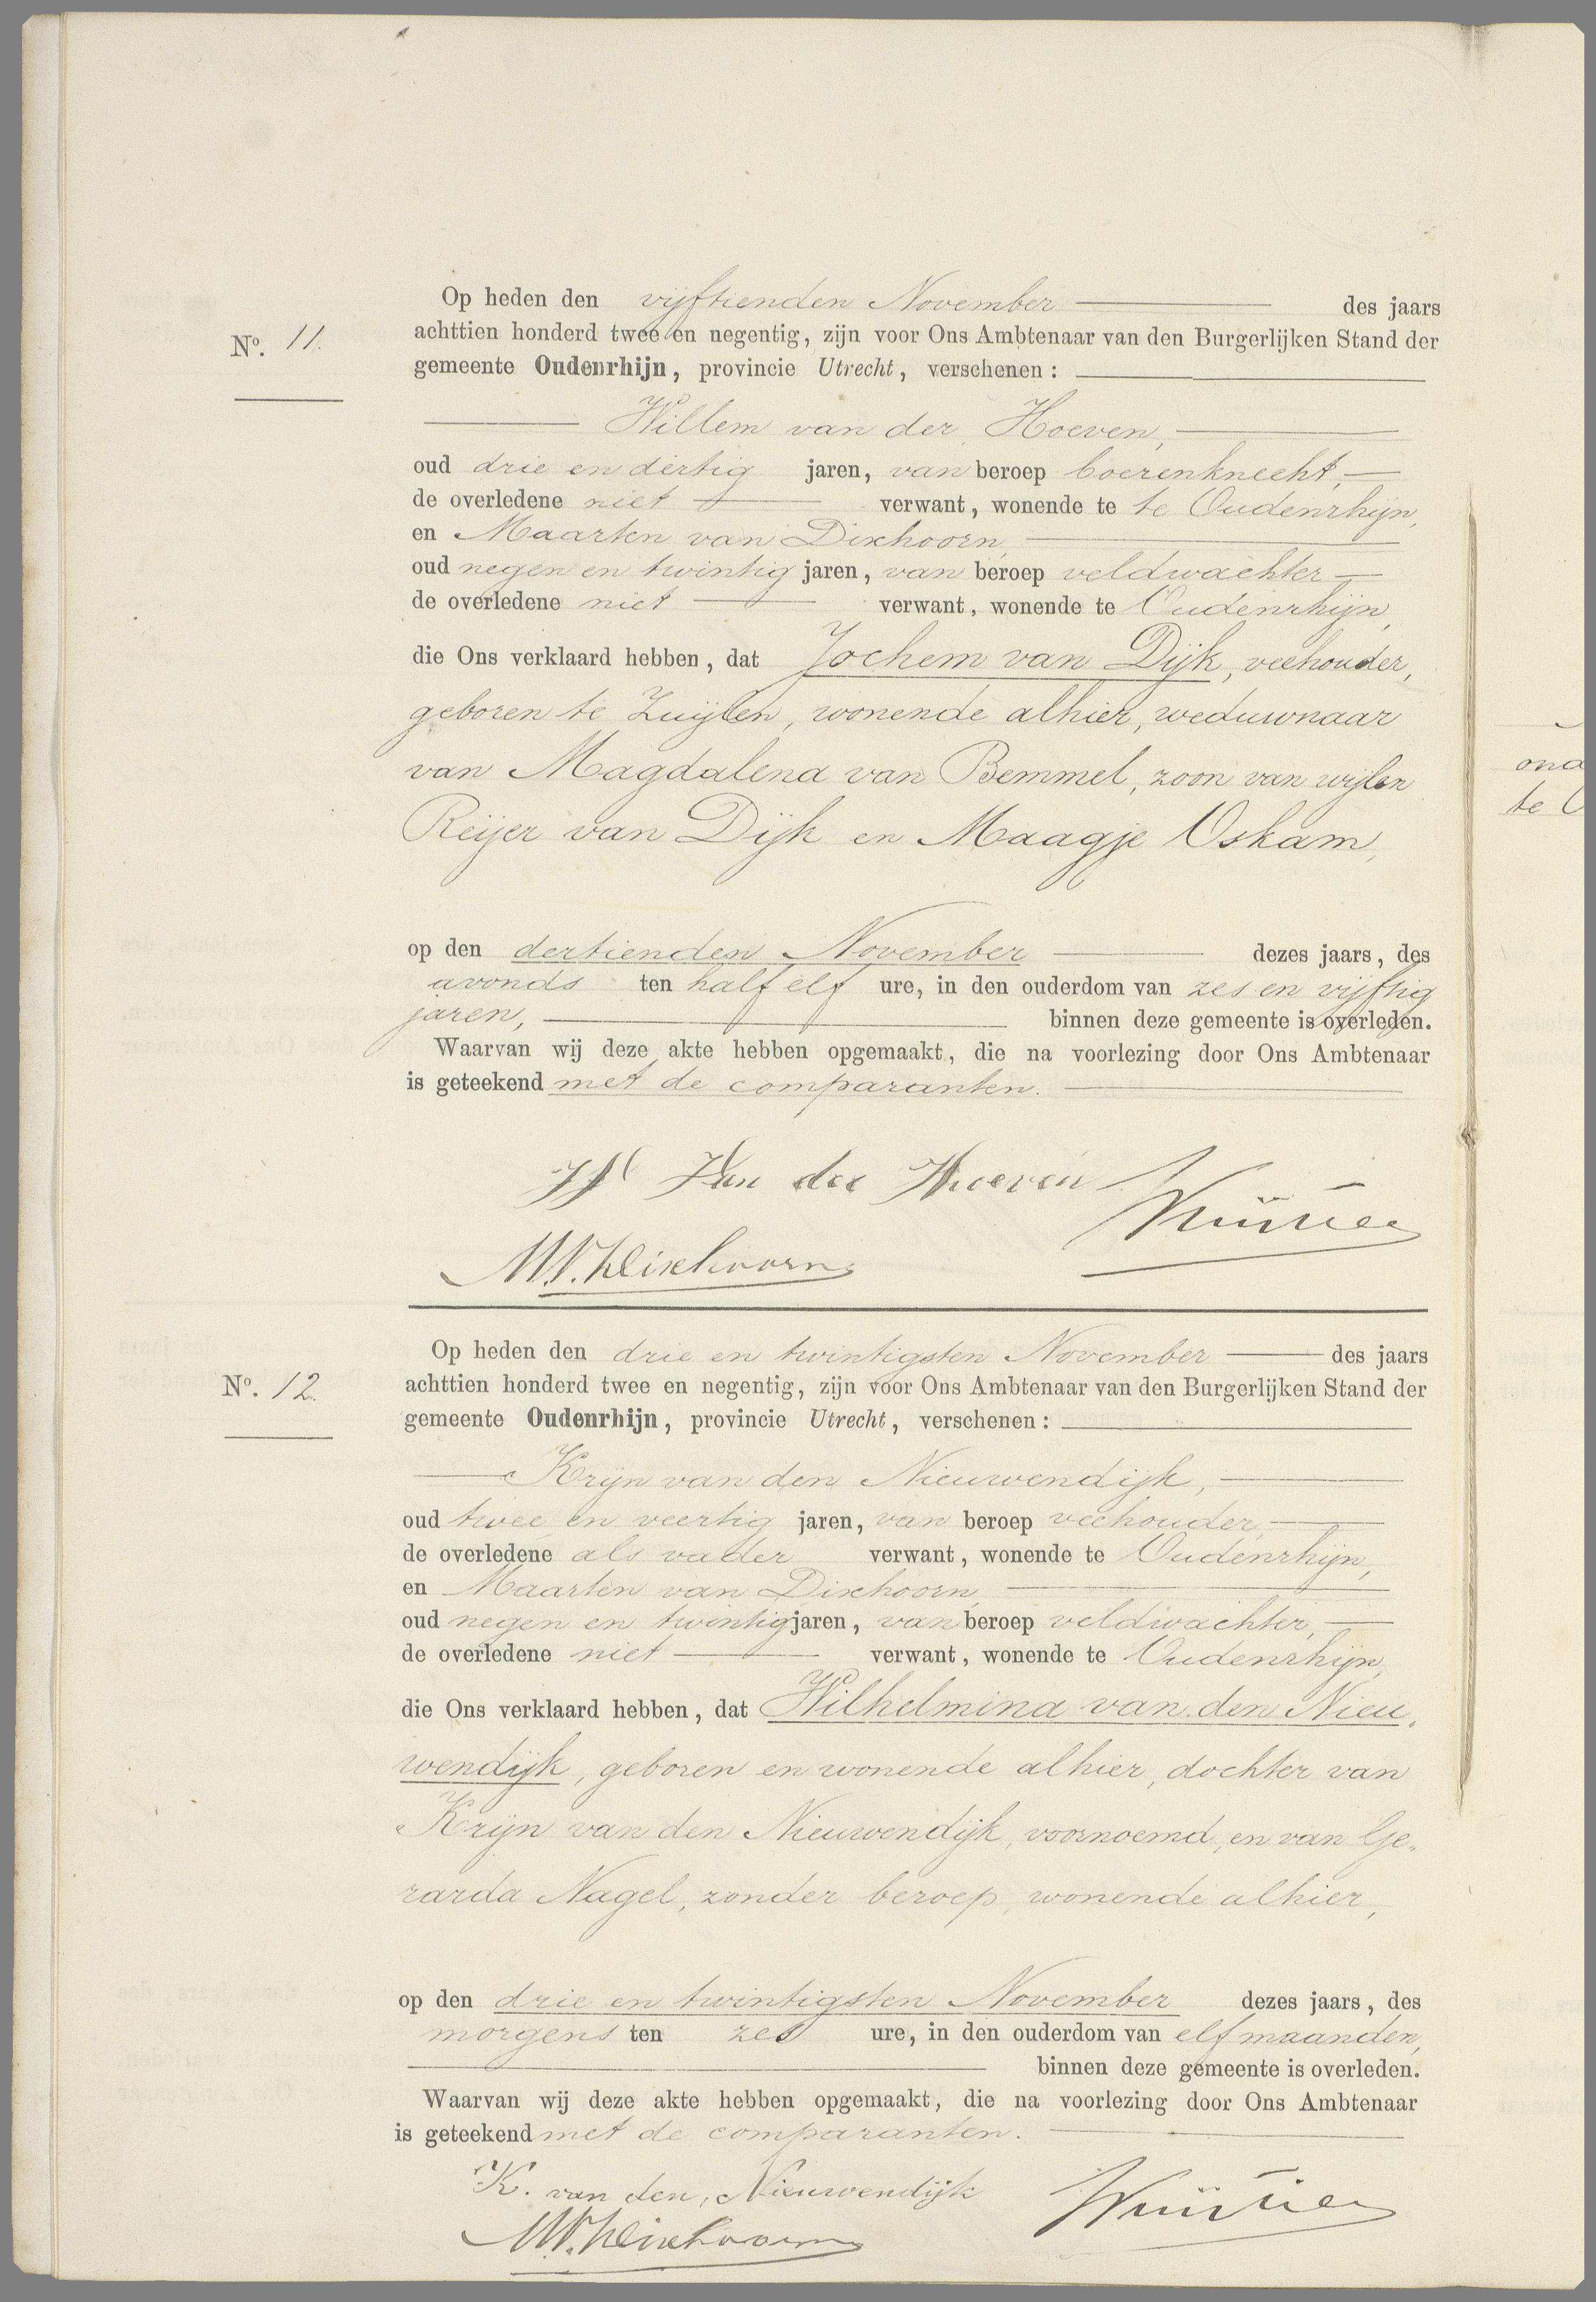 Op heden den vijftienden November des jaars
No. 11.
achttien honderd twee en negentig, zijn voor Ons Ambtenaar van den Burgerlijken Stand der
gemeente Oudenrhijn, provincie Utrecht, verschenen:
Willem van der Hoeven,
oud drie en dertig jaren, van beroep boerenknecht,
de overledene niet verwant, wonende te te Oudenrhijn,
en Maarten van Dixhoorn,
oud negen en twintig jaren, van beroep veldwachter
de overledene niet verwant, wonende te Oudenrhijn,
die Ons verklaard hebben, dat Jochem van Dijk, veehouder,
geboren te Zuijlen, wonende alhier, weduwnaar
van Magdalena van Bemmel, zoon van wijlen
Reijer van Dijk en Maagje Oskam,
op den dertienden November dezes jaars, des
avonds ten half elf ure, in den ouderdom van zes en vijftig
jaren, binnen deze gemeente is overleden.
Waarvan wij deze akte hebben opgemaakt, die na voorlezing door Ons Ambtenaar
is geteekend met de comparanten.
W Van der Hoeven
MV. Dixhoorn
Op heden den drie en twintigsten November des jaars
No. 12.
achttien honderd twee en negentig, zijn voor Ons Ambtenaar van den Burgerlijken Stand der
gemeente Oudenrhijn, provincie Utrecht, verschenen:
Krijn van den Nieuwendijk,
oud twee en veertig jaren, van beroep veehouder,
de overledene als vader verwant, wonende te Oudenrhijn,
en Maarten van Dixhoorn,
oud negen en twintig jaren, van beroep veldwachter,
de overledene niet verwant, wonende te Oudenrhijn,
die Ons verklaard hebben, dat Wilhelmina van den Nieu„
wendijk, geboren en wonende alhier, dochter van
Krijn van den Nieuwendijk, voornoemd, en van Ge„
rarda Nagel, zonder beroep, wonende alhier,
op den drie en twintigsten November dezes jaars, des
morgens ten zes ure, in den ouderdom van elf maanden,
binnen deze gemeente is overleden.
Waarvan wij deze akte hebben opgemaakt, die na voorlezing door Ons Ambtenaar
is geteekend met de comparanten.
K. van den Nieuwendijk
MV. Dixhoorn